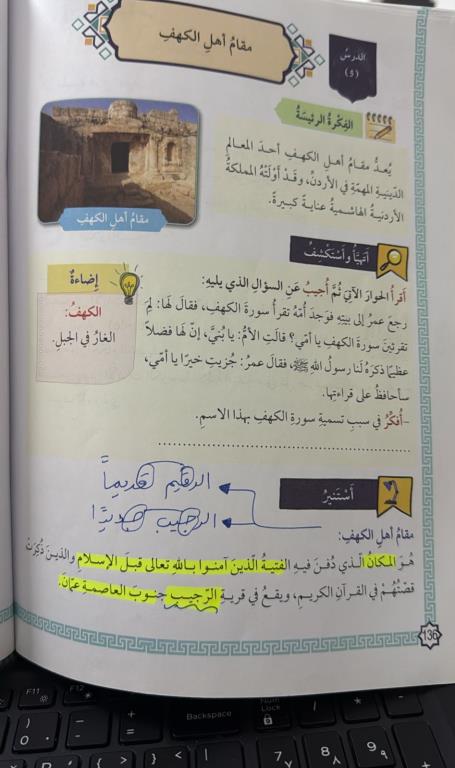 مقامُ أهلِ الكهفِ
الدرسُ
(5)
الفِكْرةُ الرئيسةُ
يُعدُّ مقامُ أهلِ الكهفِ أحدَ المعالمِ
الدّينيةِ المهمّةِ في الأردنِّ، وقَدْ أوْلَتْهُ المملكةُ
الأردنيةُ الهاشميةُ عنايةً كبيرةً.
مقامُ أهلِ الكهفِ
أتهيّأُ وأستكشفُ
أقرأُ الحوارَ الآتيَ ثُمَّ أُجيبُ عَنِ السؤالِ الذي يليهِ:
رجعَ عمرُ إلى بيتِهِ فوَجدَ أمَّهُ تقرأُ سورةَ الكهفِ، فقالَ لها: لِمَ
تقرئينَ سورةَ الكهفِ يا أمّي؟ قالتِ الأمُّ: يا بُنيَّ، إنّ لها فضلًا
عظيمًا ذكرَهُ لَنا رسولُ اللهِ ﷺ، فقالَ عمرُ: جُزيتِ خيرًا يا أمّي،
سأحافظُ على قراءتِها.
-أُفكِّرُ في سببِ تسميةِ سورةِ الكهفِ بهذا الاسمِ.
إضاءةٌ
الكهفُ:
الغارُ في الجبلِ.
الرقيم قديماً
الرجيب حديثاً
أَسْتنيرُ
مقامُ أهلِ الكهفِ:
هُوَ المكانُ الّذي دُفنَ فيهِ الفتيةُ الّذينَ آمنوا باللهِ تعالى قبلَ الإسلامِ والذينَ ذُكِرَتْ
قصّتُهُمْ في القرآنِ الكريمِ، ويقعُ في قريةِ الرّجيبِ جنوبَ العاصمةِ عمّانَ.
136
F11
F12
Backspace
Num
Lock
/
*
-
)
0
_
-
+
=
7
8
9
٧
٨
٩
P
{
[
}
]
|
\